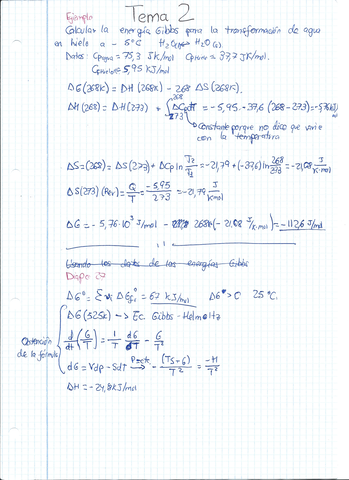 Ejemplo
Tema 2
Calcular la energía Gibbs para la transformación de agua
en hielo a -5°C H₂O(l) → H₂O(s).
Datos: Cp agua = 75,3 J K/mol Cp = 37,7 JK/mol.
5,95 KJ/mol
ΔG(268K) = ΔH(268K) - 268 ΔS(268K).
ΔH(268) = ΔH(273) + ∫ ΔCp dt = -5,95 - 37,6 (268-273) =
268
273
Constante porque no dice que varie
con la temperatura
ΔS = (268) = ΔS(273) + ΔCp ln T₂/T₁ = -21,79 + (-37,6) ln 268/273 = -21,08 J/K·mol
ΔS(273)(Rev) = Q/T = -5,95/273 = -21,79 J/K·mol
ΔG = -5,76·10³ J/mol - 268K (-21,08 J/K·mol) = -112,6 J/mol
Usando los datos de las energías Gibbs
Diapo 27
ΔG° = Σ νi ΔG°f,i = 67 KJ/mol ΔG° > 0 25°C.
ΔG(325K) → Ec. Gibbs-Helmoltz
Obtención
de la fórmula
d/dt (G/T) = 1/T dG/dT - G/T²
dG = Vdp - SdT → - (TS+G)/T² = -H/T²
ΔH = -24,8 KJ/mol